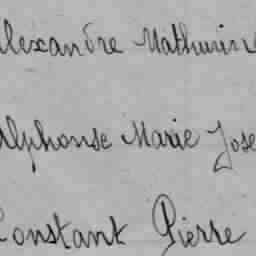 Alexandre Mathurin
Alphonse Marie Jose
Constant Pierre